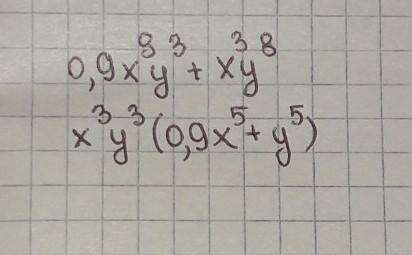 0,9x⁸y³ + x³y⁸
x³y³(0,9x⁵ + y⁵)